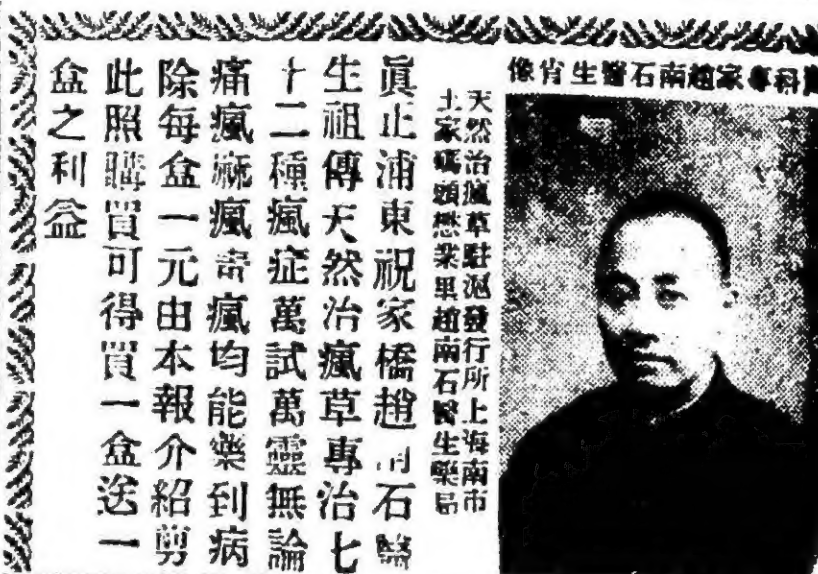 科專家趙南石醫生肖像
天然治瘋草駐滬發行所上海南市
土家碼頭懋業里趙南石醫生藥局
眞正浦東祝家橋趙南石醫
生祖傳天然治瘋草專治七
十二種瘋症萬試萬靈無論
痛瘋麻瘋奇瘋均能藥到病
除每盒一元由本報介紹剪
此照購買可得買一盒送一
盒之利益